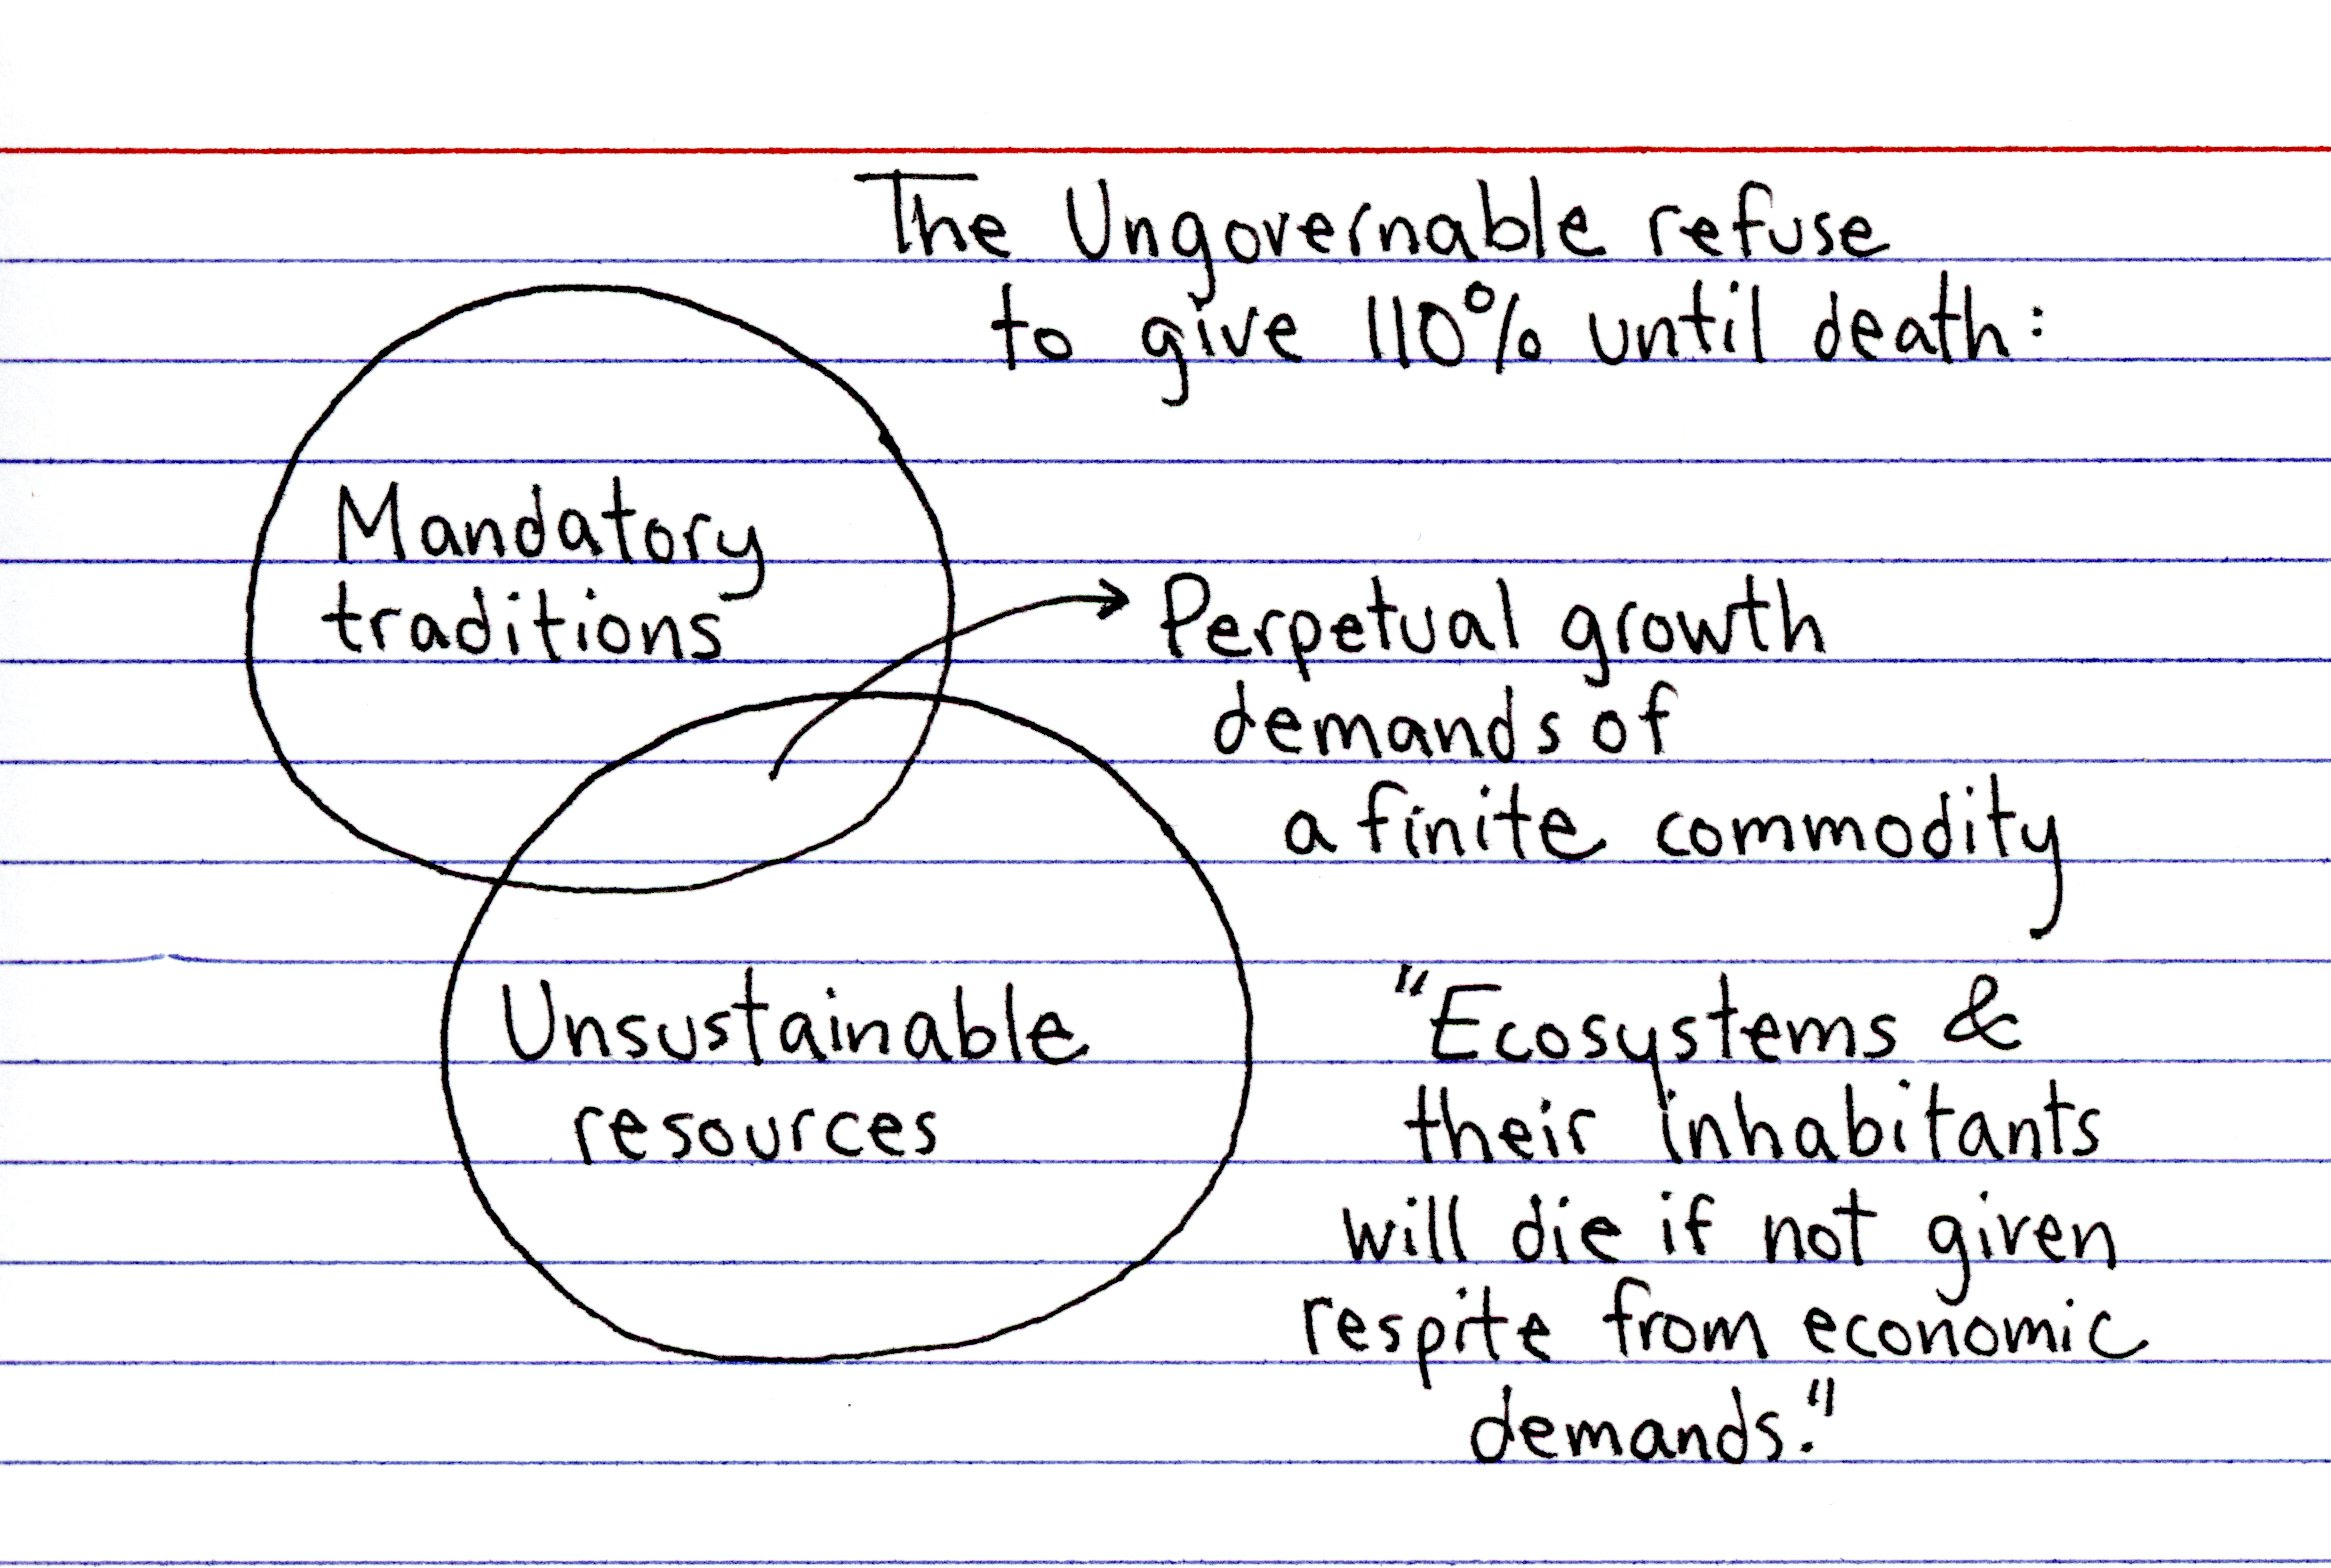 The Ungovernable refuse
to give 110% until death:
Mandatory
traditions
Perpetual growth
demands of
a finite commodity
Unsustainable
resources
"Ecosystems &
their inhabitants
will die if not given
respite from economic
demands."